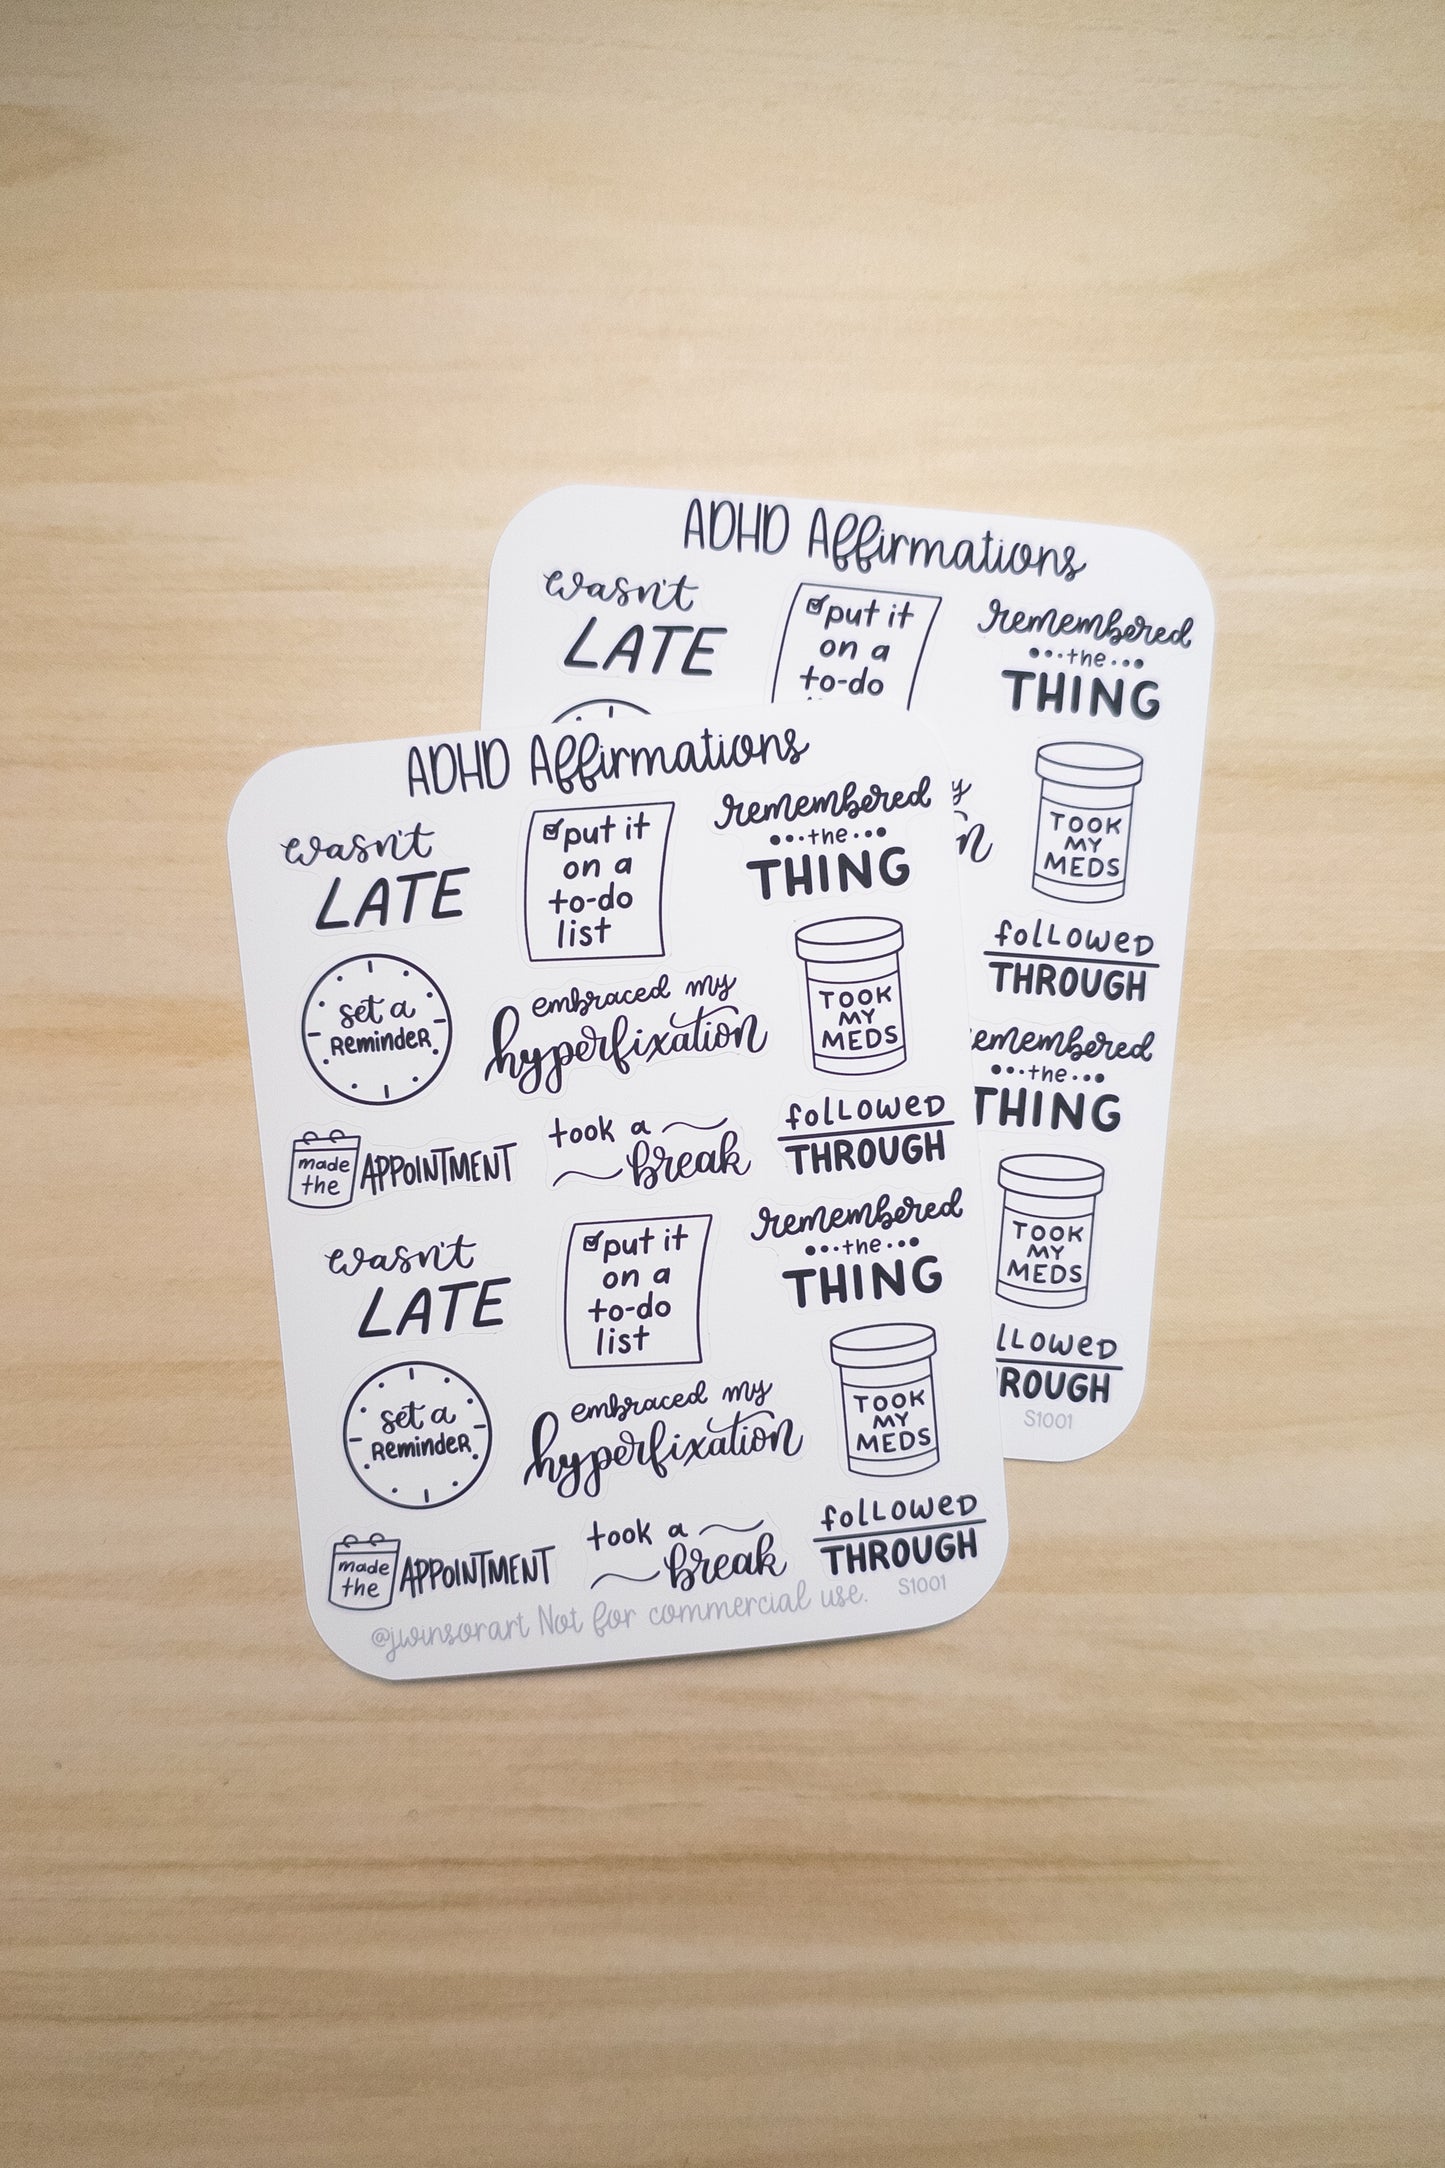 ADHD Affirmations
wasn't
LATE
put it
on a
to-do
remembered
the
THING
TOOK
MY
MEDS
followed
THROUGH
emembered
the
THING
TOOK
MY
MEDS
llowed
ROUGH
S1001
ADHD Affirmations
wasn't
LATE
put it
on a
to-do
list
remembered
the
THING
set a
Reminder
embraced my
hyperfixation
TOOK
MY
MEDS
made
the
APPOINTMENT
took a
break
followed
THROUGH
wasn't
LATE
put it
on a
to-do
list
remembered
the
THING
set a
Reminder
embraced my
hyperfixation
TOOK
MY
MEDS
made
the
APPOINTMENT
took a
break
followed
THROUGH
@jwinsorart Not for commercial use. S1001